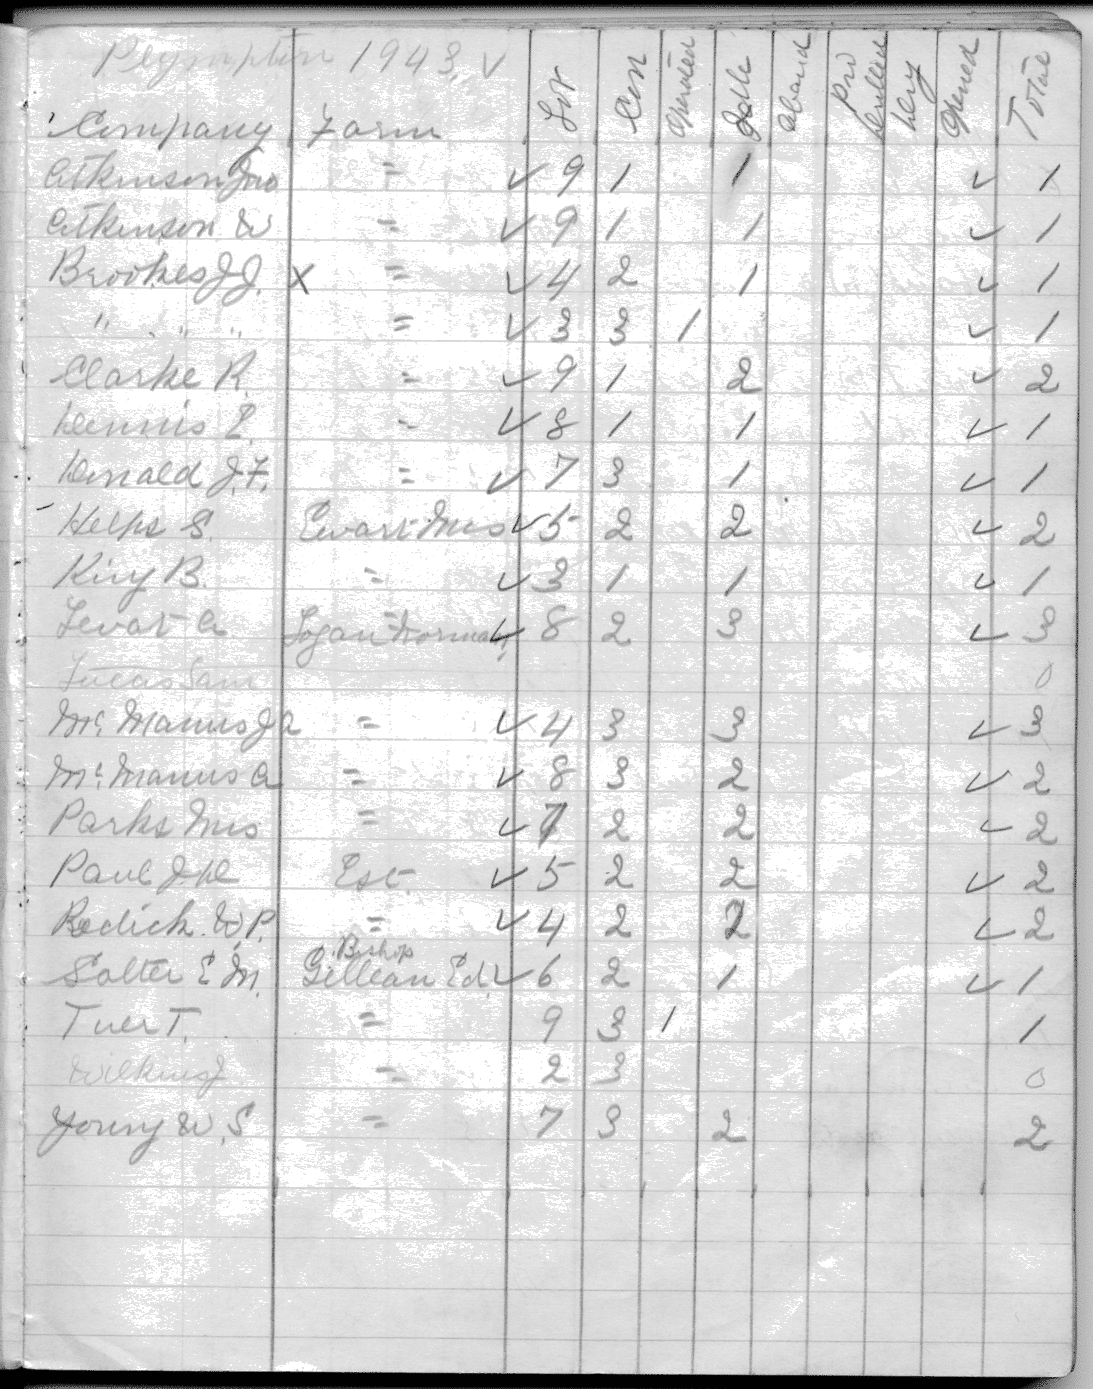 Plympton 1943 ✓
Company Farm Lot Con Operated Idle Aband Dry Opened Total
Atkinson Jno = ✓ 9 1 1 ✓ 1
Atkinson W = ✓ 9 1 1 ✓ 1
Brookes J.J. X = ✓ 4 2 1 ✓ 1
" " " = ✓ 3 3 1 ✓ 1
Clarke R. = ✓ 9 1 2 ✓ 2
Dennis E. = ✓ 8 1 1 ✓ 1
Donald J.F. = ✓ 7 3 1 ✓ 1
Helps S. Ewart Mrs ✓ 5 2 2 ✓ 2
King B. = ✓ 3 1 1 ✓ 1
A Logan Norman ✓ 8 2 3 ✓ 3
Lucas Sam 0
Mc.Manus J = ✓ 4 3 3 ✓ 3
Mc.Manus A = ✓ 8 3 2 ✓ 2
Parks Mrs = ✓ 7 2 2 ✓ 2
Paul Est. ✓ 5 2 2 ✓ 2
Redick W.P. = ✓ 4 2 2 ✓ 2
Bishop
Salter E M. Gillean Ed. ✓ 6 2 1 ✓ 1
Tuer T. = 9 3 1 1
Wilkins J = 2 3 0
Young W.S = 7 3 2 2